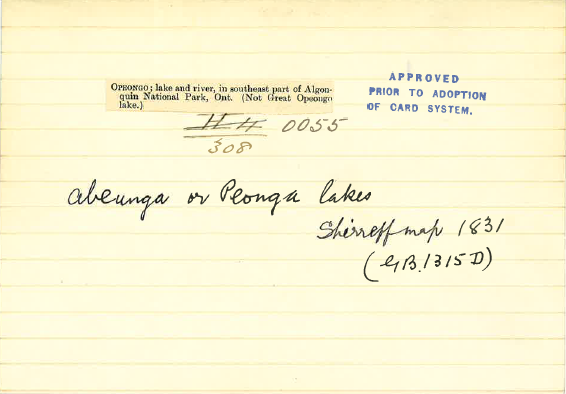 OPEONGO; lake and river, in southeast part of Algon-
quin National Park, Ont. (Not Great Opeongo
lake.)
APPROVED
PRIOR TO ADOPTION
OF CARD SYSTEM.
0055
308
Abeunga or Peonga lakes
Sherreff map 1831
(GB.1315D)